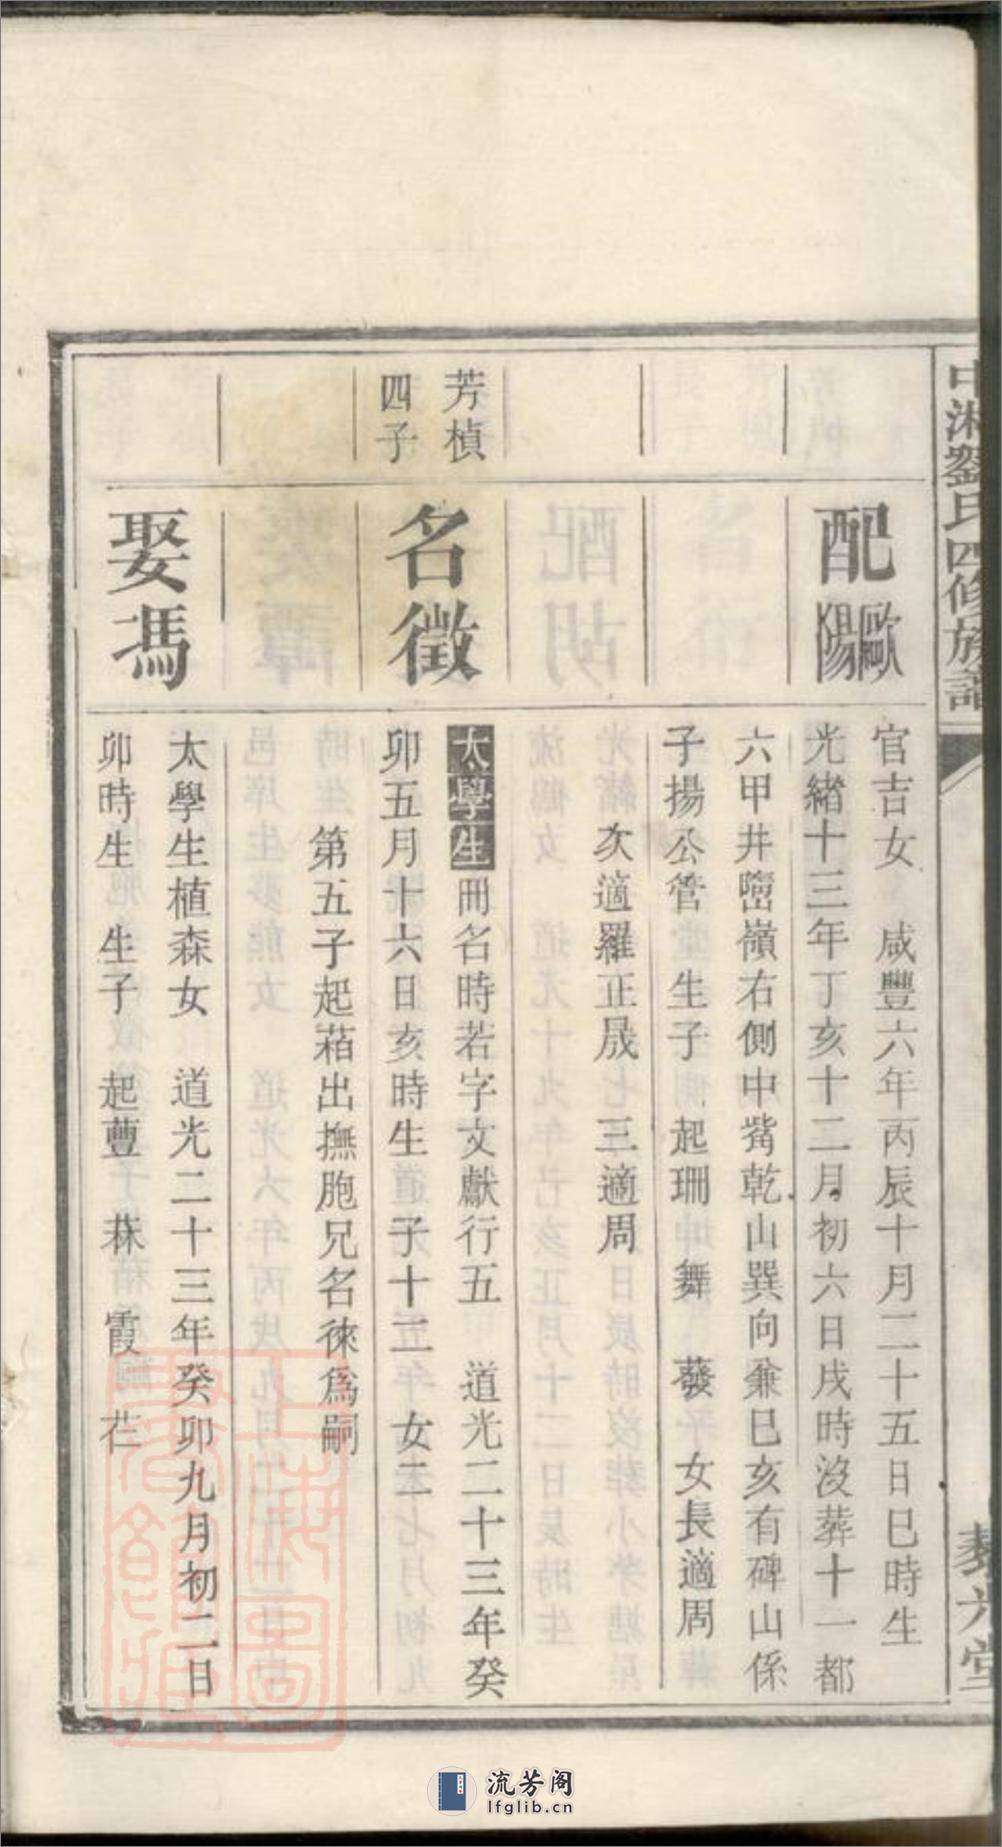 中湘劉氏四修族譜
藜光堂
配歐陽
官吉女　咸豐六年丙辰十月二十五日巳時生
光緒十三年丁亥十二月初六日戌時沒葬十一都
六甲井嶺右側中嘴乾山巽向兼巳亥有碑山係
子揚公管　生子　起珊　舞　發　女長適周
次適羅正晟　三適周
芳楨
四子
名徵
太學生冊名時若字文獻行五　道光二十三年癸
卯五月十六日亥時生　子十一　女二
第五子起萡出撫胞兄名徠爲嗣
娶馮
太學生植森女　道光二十三年癸卯九月初二日
卯時生　生子　起蘴　菻　霞　茫
上海圖書館藏
流芳阁
lfglib.cn